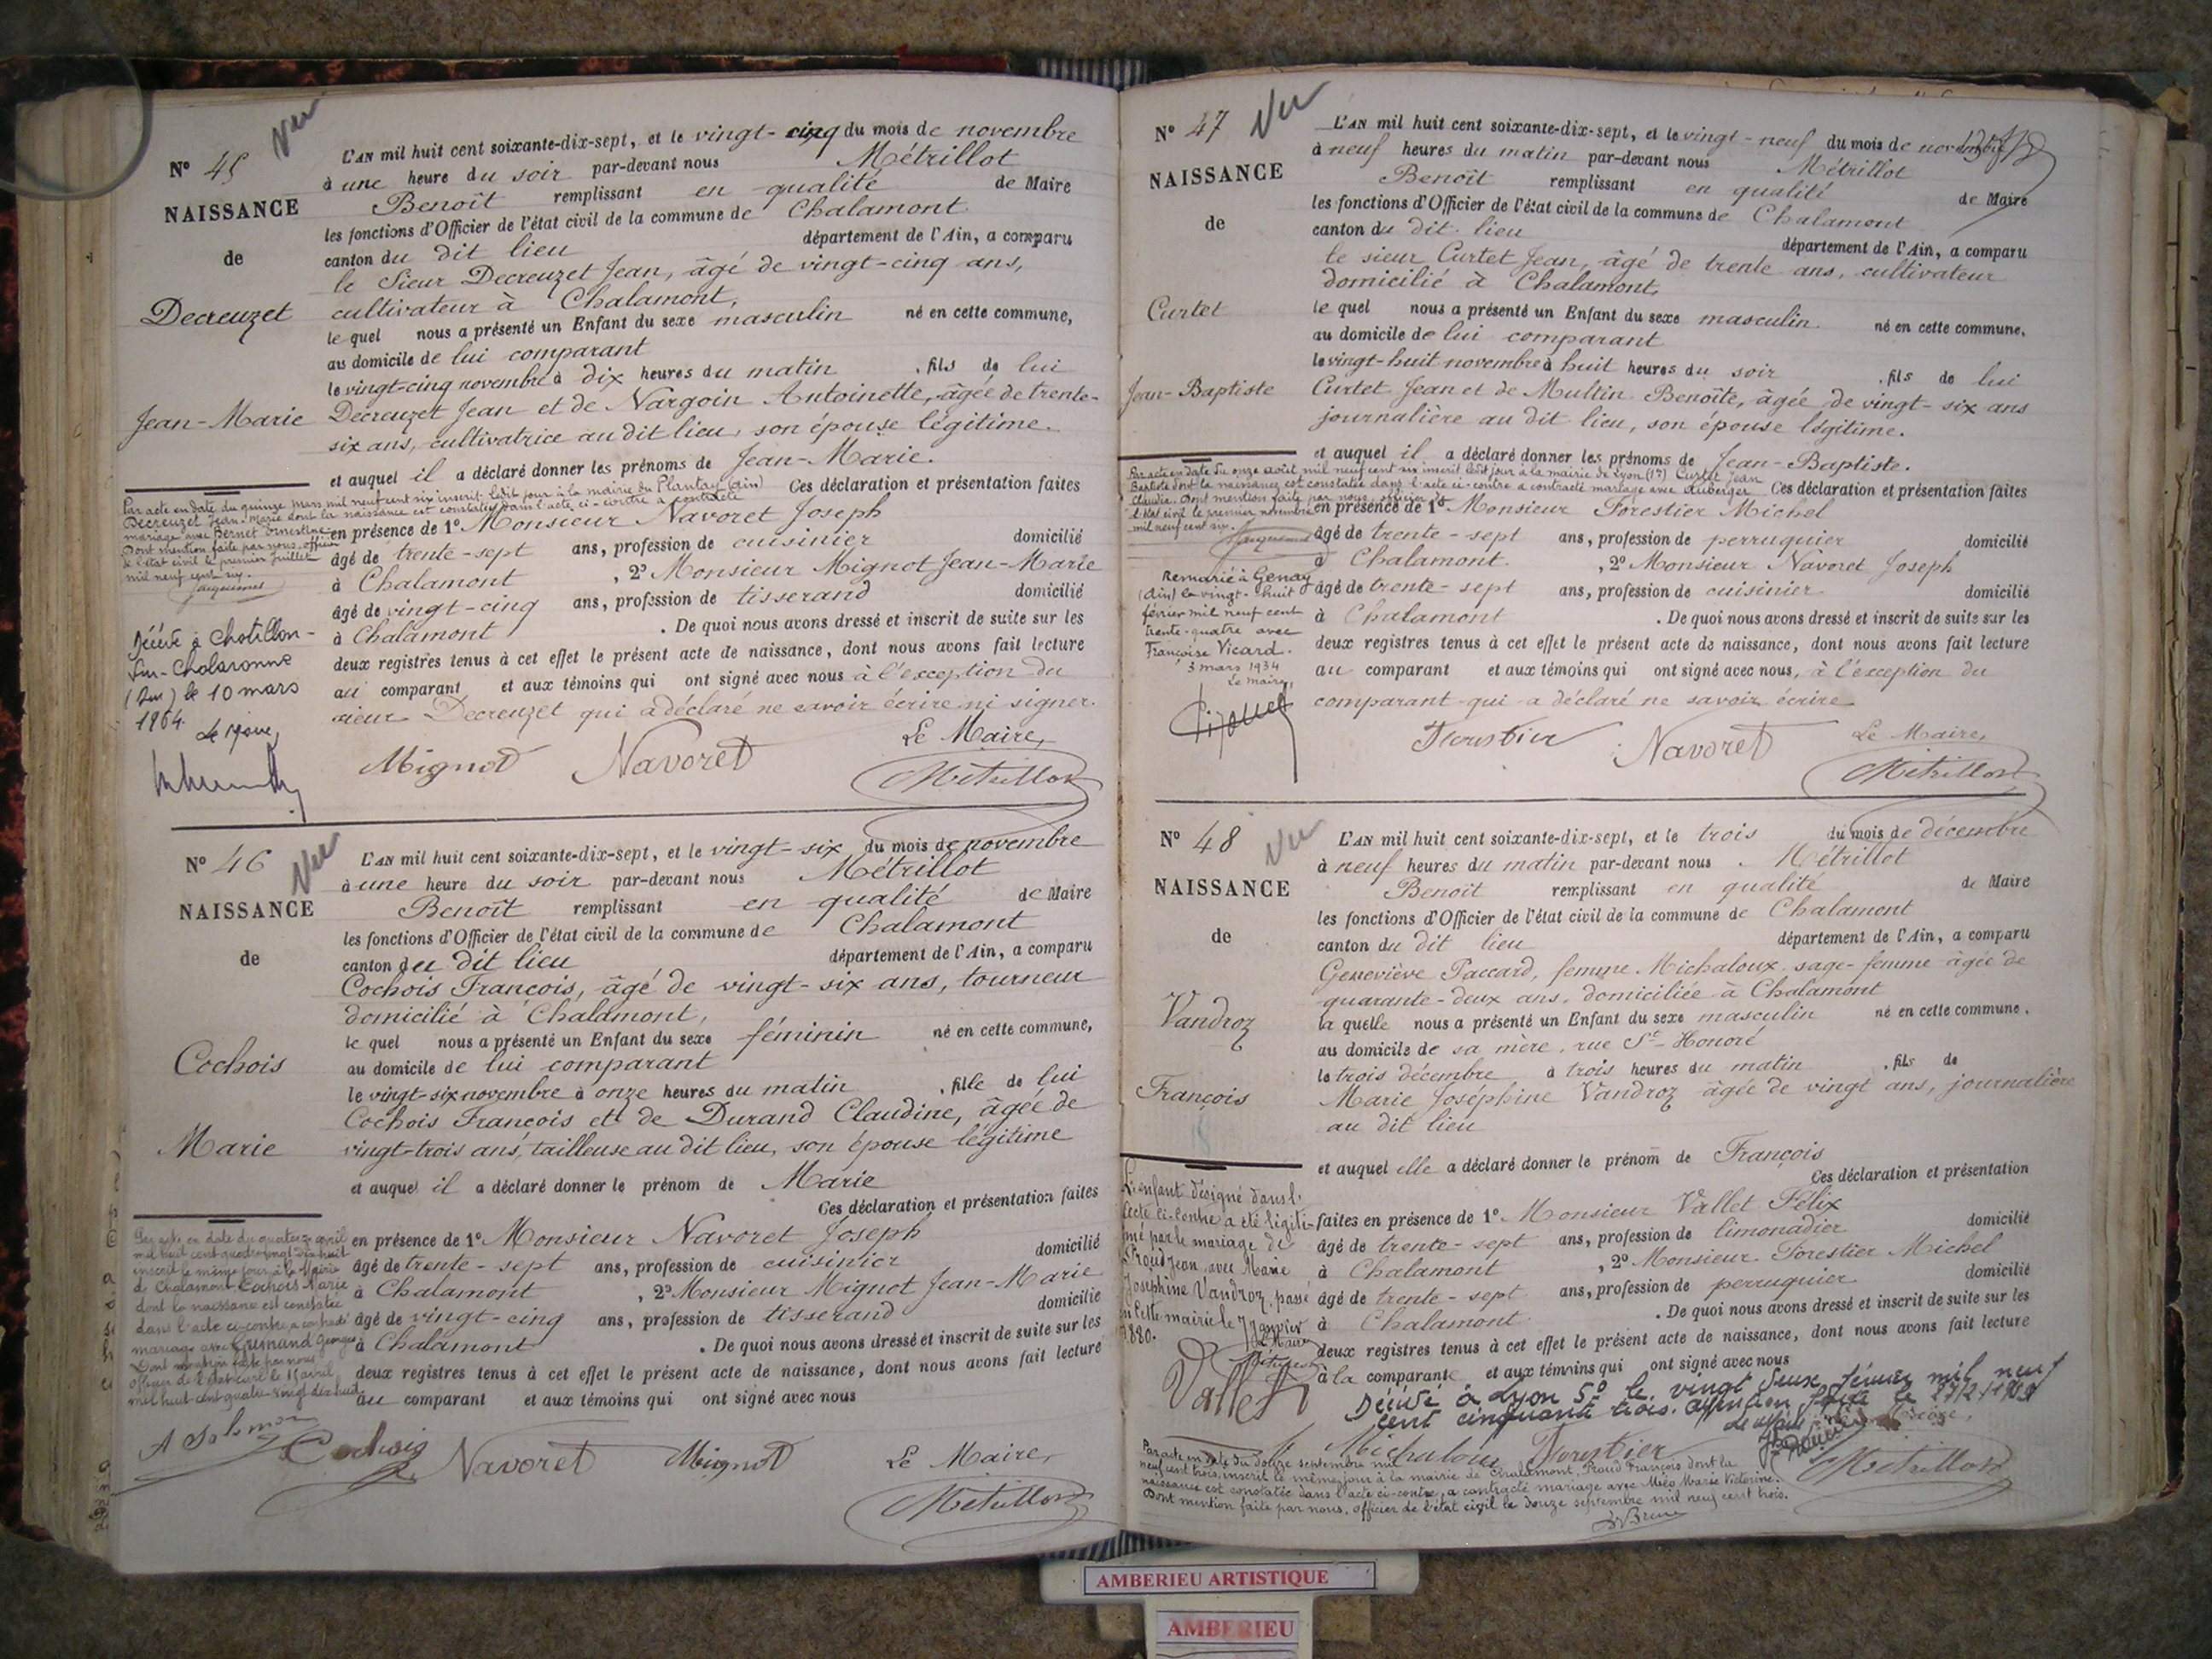 Vu
N° 45
NAISSANCE
de
Decreuzet
Jean-Marie
L'AN mil huit cent soixante-dix-sept, et le vingt-cinq du mois de novembre
à une heure du soir par-devant nous Métrillot
Benoît remplissant en qualité de Maire
les fonctions d'Officier de l'état civil de la commune de Chalamont
canton du dit lieu département de l'Ain, a comparu
le Sieur Decreuzet Jean, âgé de vingt-cinq ans,
cultivateur à Chalamont,
le quel nous a présenté un Enfant du sexe masculin né en cette commune,
au domicile de lui comparant
le vingt-cinq novembre à dix heures du matin, fils de lui
Decreuzet Jean et de Nargoin Antoinette, âgée de trente-
six ans, cultivatrice au dit lieu, son épouse légitime.
et auquel il a déclaré donner les prénoms de Jean-Marie.
Ces déclaration et présentation faites
en présence de 1° Monsieur Navoret Joseph
âgé de trente-sept ans, profession de cuisinier domicilié
à Chalamont, 2° Monsieur Mignot Jean-Marie
âgé de vingt-cinq ans, profession de tisserand domicilié
à Chalamont. De quoi nous avons dressé et inscrit de suite sur les
deux registres tenus à cet effet le présent acte de naissance, dont nous avons fait lecture
au comparant et aux témoins qui ont signé avec nous à l'exception du
sieur Decreuzet qui a déclaré ne savoir écrire ni signer.
Mignot Navoret Le Maire,
Métrillot
Par acte en date du quinze mars mil neuf cent six inscrit ledit jour à la mairie du Plantay (Ain)
Decreuzet Jean-Marie dont la naissance est constatée dans l'acte ci-contre a contracté
mariage avec Bernet Ernestine
Dont mention faite par nous officier
de l'état civil le premier Juillet
mil neuf cent six.
Jacquemet
Décédé à Chatillon-
sur-Chalaronne
(Ain) le 10 mars
1964.
Le Maire,
Vu
N° 46
NAISSANCE
de
Cochois
Marie
L'AN mil huit cent soixante-dix-sept, et le vingt-six du mois de novembre
à une heure du soir par-devant nous Métrillot
Benoît remplissant en qualité de Maire
les fonctions d'Officier de l'état civil de la commune de Chalamont
canton du dit lieu département de l'Ain, a comparu
Cochois François, âgé de vingt-six ans, tourneur
domicilié à Chalamont,
le quel nous a présenté un Enfant du sexe féminin né en cette commune,
au domicile de lui comparant
le vingt-six novembre à onze heures du matin, fille de lui
Cochois François et de Durand Claudine, âgée de
vingt-trois ans, tailleuse au dit lieu, son épouse légitime
et auquel il a déclaré donner le prénom de Marie
Ces déclaration et présentation faites
en présence de 1° Monsieur Navoret Joseph
âgé de trente-sept ans, profession de cuisinier domicilié
à Chalamont, 2° Monsieur Mignot Jean-Marie
âgé de vingt-cinq ans, profession de tisserand domicilié
à Chalamont. De quoi nous avons dressé et inscrit de suite sur les
deux registres tenus à cet effet le présent acte de naissance, dont nous avons fait lecture
au comparant et aux témoins qui ont signé avec nous
Navoret Mignot Le Maire,
Métrillot
Par acte en date du quatorze avril
mil huit cent quatre vingt dix huit
inscrit le même jour à la Mairie
de Chalamont Cochois Marie
dont la naissance est constatée
dans l'acte ci-contre, a contracté
mariage avec Georges
Dont mention faite par nous
officier de l'état civil le 15 avril
mil huit cent quatre vingt dix huit
Vu
N° 47
NAISSANCE
de
Curtet
Jean-Baptiste
L'AN mil huit cent soixante-dix-sept, et le vingt-neuf du mois de novembre
à neuf heures du matin par-devant nous Métrillot
Benoît remplissant en qualité de Maire
les fonctions d'Officier de l'état civil de la commune de Chalamont
canton du dit lieu département de l'Ain, a comparu
le sieur Curtet Jean, âgé de trente ans, cultivateur
domicilié à Chalamont,
le quel nous a présenté un Enfant du sexe masculin né en cette commune,
au domicile de lui comparant
le vingt-huit novembre à huit heures du soir, fils de lui
Curtet Jean et de Multin Benoîte, âgée de vingt-six ans
journalière au dit lieu, son épouse légitime.
et auquel il a déclaré donner les prénoms de Jean-Baptiste.
Ces déclaration et présentation faites
en présence de 1° Monsieur Forestier Michel
âgé de trente-sept ans, profession de perruquier domicilié
à Chalamont, 2° Monsieur Navoret Joseph
âgé de trente-sept ans, profession de cuisinier domicilié
à Chalamont. De quoi nous avons dressé et inscrit de suite sur les
deux registres tenus à cet effet le présent acte de naissance, dont nous avons fait lecture
au comparant et aux témoins qui ont signé avec nous, à l'exception du
comparant qui a déclaré ne savoir écrire
Forestier Navoret Le Maire,
Métrillot
Par acte en date du onze août mil neuf cent six inscrit ledit jour à la mairie de Lyon Curtet Jean
Baptiste dont la naissance est constatée dans l'acte ci-contre a contracté mariage avec Auberger
Claudia. Dont mention faite par nous, officier de
l'état civil le premier novembre
mil neuf cent six.
Jacquemet
Remarié à Genay
(Ain) le vingt-huit
février mil neuf cent
trente-quatre avec
Françoise Vicard.
3 mars 1934
Le maire,
Vu
N° 48
NAISSANCE
de
Vandroz
François
L'AN mil huit cent soixante-dix-sept, et le trois du mois de décembre
à neuf heures du matin par-devant nous Métrillot
Benoît remplissant en qualité de Maire
les fonctions d'Officier de l'état civil de la commune de Chalamont
canton du dit lieu département de l'Ain, a comparu
Geneviève Paccard, femme Michaloux, sage-femme âgée de
quarante-deux ans, domiciliée à Chalamont
la quelle nous a présenté un Enfant du sexe masculin né en cette commune,
au domicile de sa mère, rue St-Honoré
le trois décembre à trois heures du matin, fils de
Marie Joséphine Vandroz âgée de vingt ans, journalière
au dit lieu
et auquel elle a déclaré donner le prénom de François
Ces déclaration et présentation
faites en présence de 1° Monsieur Vallet Félix
âgé de trente-sept ans, profession de limonadier domicilié
à Chalamont, 2° Monsieur Forestier Michel
âgé de trente-sept ans, profession de perruquier domicilié
à Chalamont. De quoi nous avons dressé et inscrit de suite sur les
deux registres tenus à cet effet le présent acte de naissance, dont nous avons fait lecture
à la comparante et aux témoins qui ont signé avec nous
L'enfant désigné dans l'
acte ci-contre a été légiti-
mé par le mariage de
Proud Jean, avec Marie
Joséphine Vandroz, passé
en cette mairie le 7 janvier
1880.
Le Maire
Métrillot
Vallet
Décédé à Lyon 5° le vingt deux février mil neuf
cent cinquante trois.
Michaloux Forestier
Métrillot
Par acte en date du douze septembre mil
neuf cent trois, inscrit le même jour à la mairie de Chalamont, Proud François dont la
naissance est constatée dans l'acte ci-contre, a contracté mariage avec Miéo Marie Victorine.
Dont mention faite par nous, officier de l'état civil le douze septembre mil neuf cent trois.
AMBERIEU ARTISTIQUE
AMBERIEU